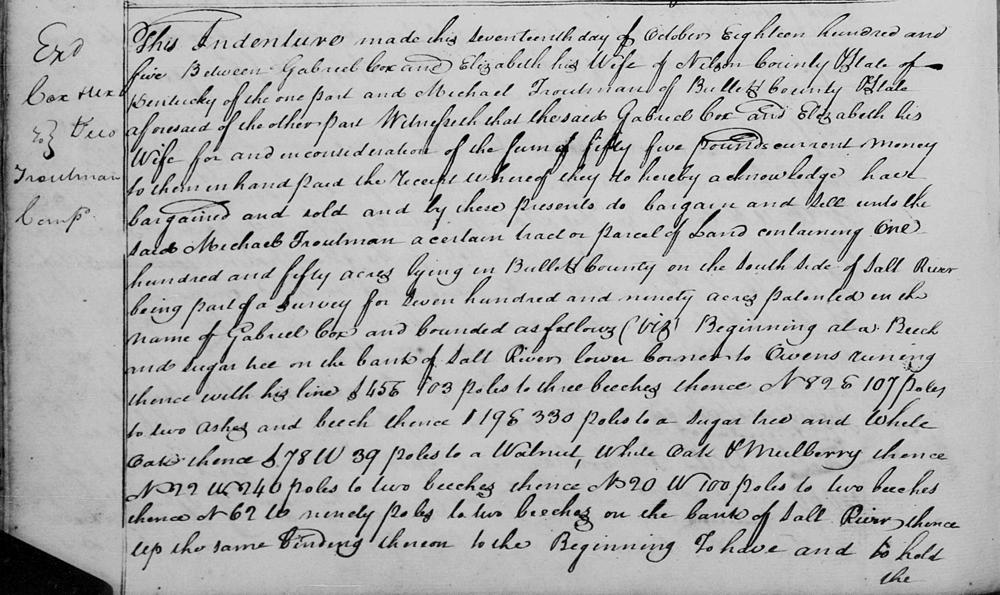 Exd
Cox & ux
To } Deed
Troutman
Comp.
This Indenture made this seventeenth day of October Eighteen hundred and
five Between Gabriel Cox and Elizabeth his Wife of Nelson County State of
Kentucky of the one part and Michael Troutman of Bullitt County State
aforesaid of the other part Witnesseth that the said Gabriel Cox and Elizabeth his
Wife for and in consideration of the sum of fifty five pounds current money
to them in hand paid the receipt whereof they do hereby acknowledge have
bargained and sold and by these presents do bargain and sell unto the
said Michael Troutman a certain tract or parcel of Land containing One
hundred and fifty acres lying in Bullitt County on the south side of Salt River
being part of a survey for seven hundred and ninety acres patented in the
name of Gabriel Cox and bounded as follows (Viz) Beginning at a Beech
and sugar tree on the bank of Salt River lower corner to Owens runing
thence with his line S 45 E 103 poles to three beeches thence N 82 E 107 poles
to two ashes and beech thence S 19 E 330 poles to a sugar tree and White
Oak thence S 78 W 39 poles to a Walnut, White Oak & Mulberry thence
N 22 W 240 poles to two beeches thence N 20 W 100 poles to two beeches
thence N 62 W ninety poles to two beeches on the bank of Salt River thence
up the same binding thereon to the Beginning To have and to hold
the